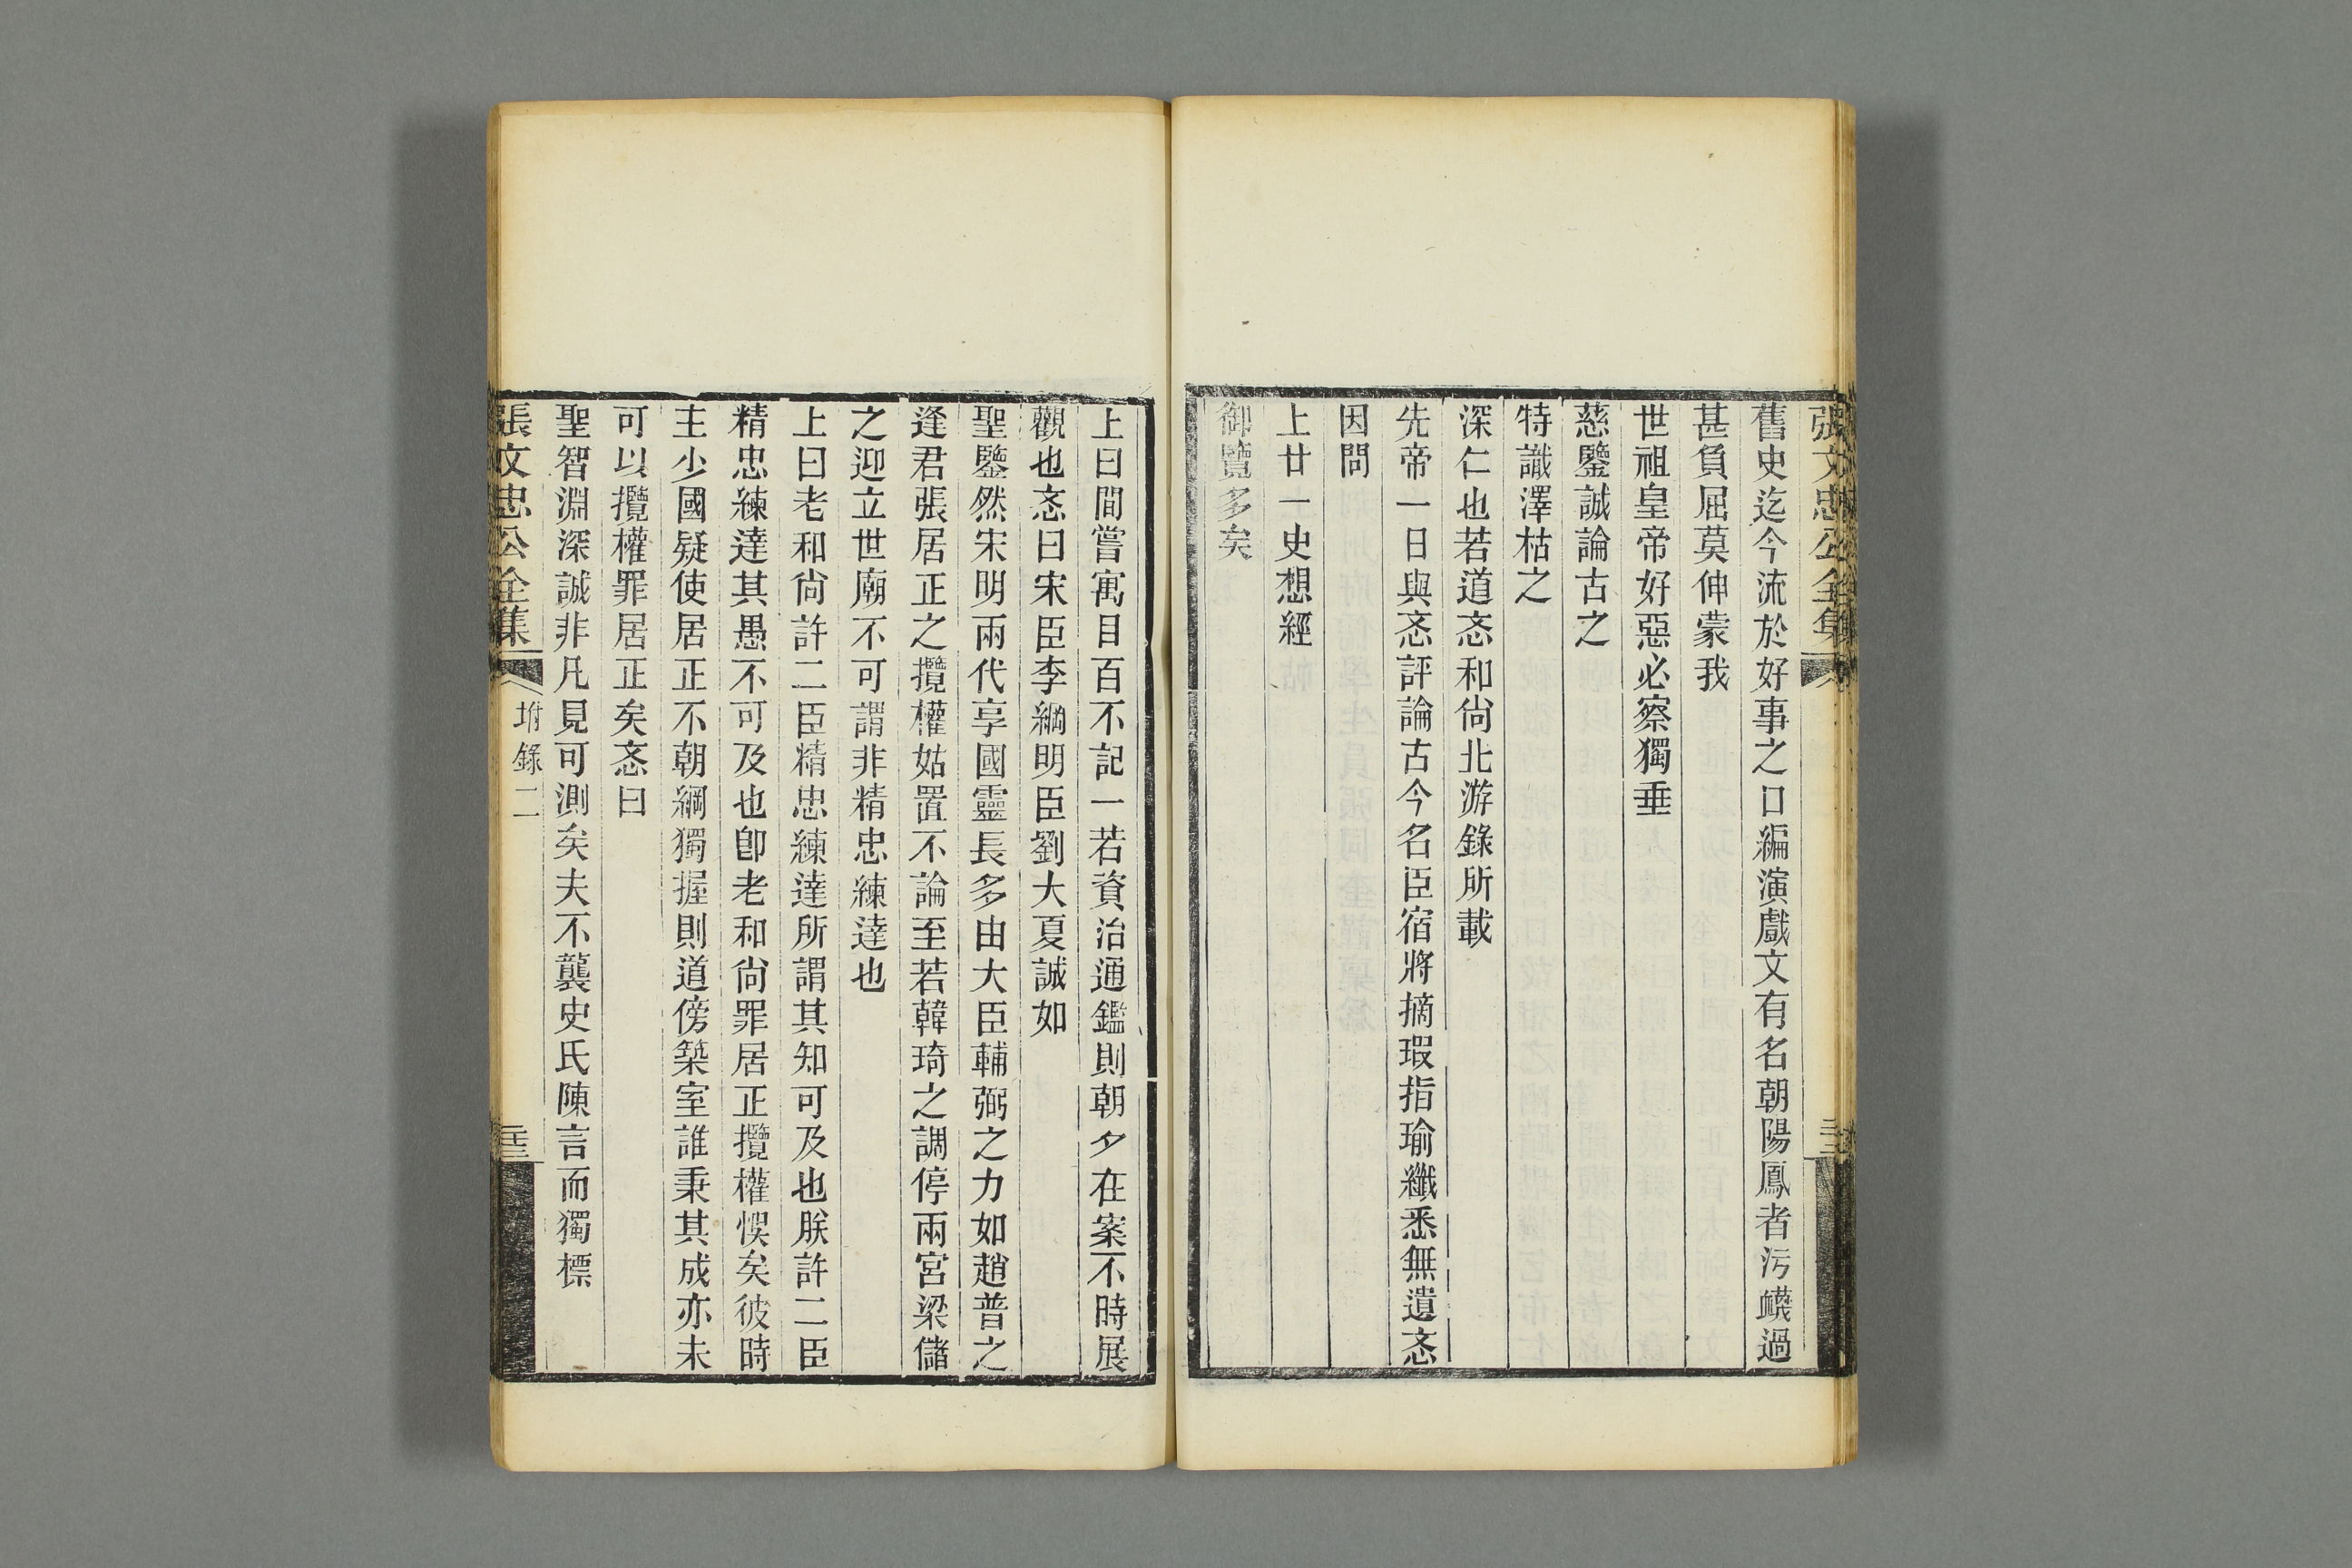 張文忠公全集
舊史迄今流於好事之口編演戲文有名朝陽鳳者污衊過
甚負屈莫伸蒙我
世祖皇帝好惡必察獨垂
慈鑒誠論古之
特識澤枯之
深仁也若道忞和尙北游錄所載
先帝一日與忞評論古今名臣宿將摘瑕指瑜纖悉無遺忞
因問
上廿一史想經
御覽多矣
上曰間嘗寓目百不記一若資治通鑑則朝夕在案不時展
觀也忞曰宋臣李綱明臣劉大夏誠如
聖鑒然宋明兩代享國靈長多由大臣輔弼之力如趙普之
逢君張居正之攬權姑置不論至若韓琦之調停兩宮梁儲
之迎立世廟不可謂非精忠練達也
上曰老和尙許二臣精忠練達所謂其知可及也朕許二臣
精忠練達其愚不可及也卽老和尙罪居正攬權悞矣彼時
主少國疑使居正不朝綱獨握則道傍築室誰秉其成亦未
可以攬權罪居正矣忞曰
聖智淵深誠非凡見可測矣夫不襲史氏陳言而獨標
張文忠公全集
附錄二